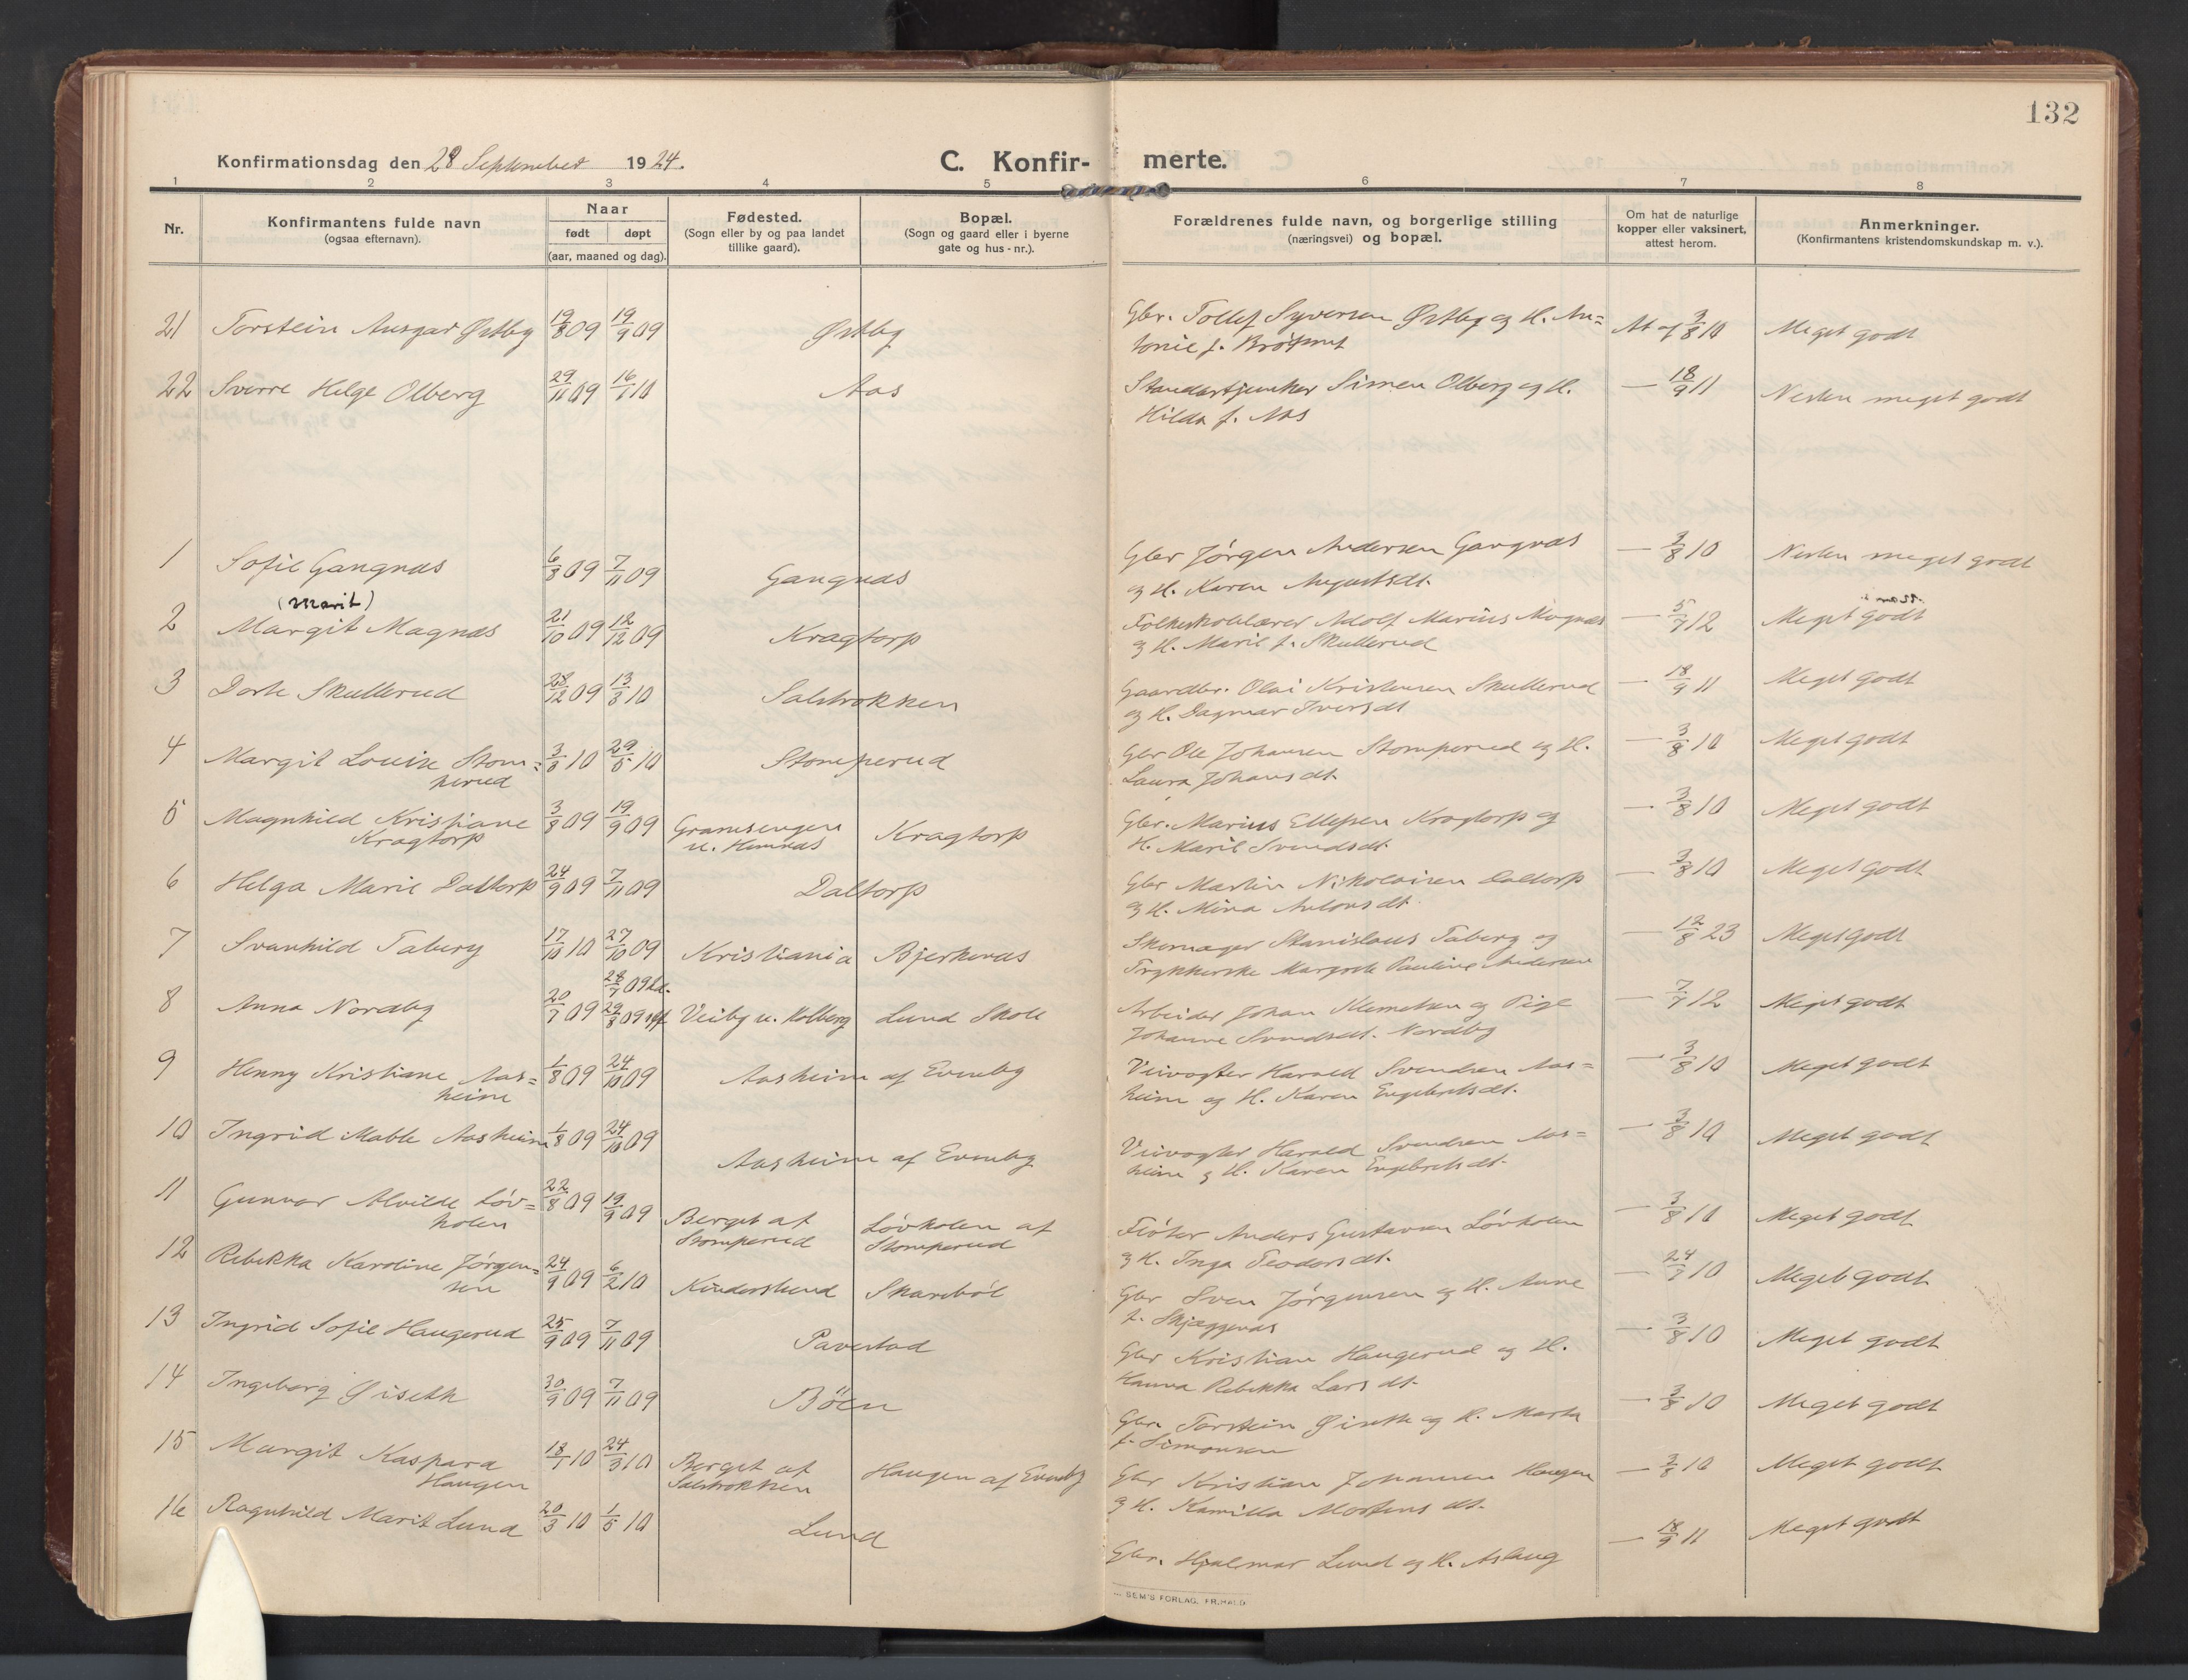 132
Konfirmationsdag den 28 September 1924.
C. Konfir- merte.
1 2 3 4 5 6 7 8
Nr.
Konfirmantens fulde navn
(ogsaa efternavn).
Naar
født døpt
(aar, maaned og dag).
Fødested.
(Sogn eller by og paa landet
tillike gaard).
Bopæl.
(Sogn og gaard eller i byerne
gate og hus-nr.).
Forældrenes fulde navn, og borgerlige stilling
(næringsvei) og bopæl.
Om hat de naturlige
kopper eller vaksinert,
attest herom.
Anmerkninger.
(Konfirmantens kristendomskundskap m. v.).
21 Torstein Ansgar Østby 19/8 09 19/9 09 Østby Gbr. Tollef Syversen Østby og H. An= At af 3/8 10 Meget godt
tonie f.
22 Sverre Helge Olberg 29/11 09 16/1 10 Aas Standartjunker Simen Olberg og H. — 18/9 11 Nesten meget godt
Hilda f. Aas
1 Sofie Gangnæs 6/8 09 7/11 09 Gangnæs Gbr Jørgen Andersen Gangnæs — 3/8 10 Nesten meget godt
og H. Karen Augustsdt.
(Marit)
2 Margit Magnæs 21/10 09 12/12 09 Kragtorp Folkeskolelærer Adolf Marius Magnæs — 5/7 12 Meget godt
og H. Marie f. Skullerud
3 Dorte Skullerud 28/12 09 13/3 10 Salstrokken Gaardbr. Olai Kristensen Skullerud — 18/9 11 Meget godt
og H. Dagmar Iversdt
4 Margit Louise Stom= 3/3 10 29/5 10 Stomperud Gbr Ole Johansen Stomperud og H. — 3/8 10 Meget godt
perud Laura Johansdt.
5 Magnhild Kristiane 3/8 09 19/9 09 Gramsengen Kragtorp Gbr. Marius Ellefsen Kragtorp og — 3/8 10 Meget godt
Kragtorp u. Hemnæs H. Marie Svendsdt.
6 Helga Marie Daltorp 24/9 09 7/11 09 Daltorp Gbr Martin Nikolaisen Daltorp — 3/8 10 Meget godt
og H. Mina Antonsdt.
7 Svanhild Taberg 17/10 10 27/10 09 Kristiania Bjerkenæs Skomager Stanislaus Taberg og — 12/8 23 Meget godt
Trykkerske Margrete Pauline Andersen
28/7 09 hd.
8 Anna Nordby 20/7 09 29/8 09 Veiby u. Kolberg Lund Skole Arbeider Johan Klemetsen og Pige — 7/7 12 Meget godt
Johanne Svendsdt. Nordby
9 Henny Kristiane Aas= 1/8 09 24/10 09 Aasheim af Evenby Veivogter Harald Svendsen Aas= — 3/8 10 Meget godt
heim heim og H. Karen Engebretsdt.
10 Ingrid Mable Aasheim 1/8 09 24/10 09 Aasheim af Evenby Veivogter Harald Svendsen Aas= — 3/8 10 Meget godt
heim og H. Karen Engebretsdt.
11 Gunvor Alvilde Løv= 22/8 09 19/9 09 Berget af Løvholen af Fløter Anders Gustavsen Løvholen — 3/8 10 Meget godt
holen Stomperud Stomperud og H. Inga Teodorsdt.
12 Rebekka Karoline Jørgen= 24/9 09 6/2 10 Skarebøl Gbr Sven Jørgensen og H. Anne — 24/7 10 Meget godt
sen f. Skjæggenæs
13 Ingrid Sofie Haugerud 25/9 09 7/11 09 Pavestad Gbr Kristian Haugerud og H. — 3/8 10 Meget godt
Hanna Rebekka Larsdt.
14 Ingeborg Øiseth 30/9 09 7/11 09 Böen Gbr. Torstein Øiseth og H. Marta — 3/8 10 Meget godt
f. Simonsen
15 Margit Kaspara 18/1 10 24/3 10 Berget af Haugen af Evenby Gbr Kristian Johansen Haugen — 3/8 10 Meget godt
Haugen Salstrokken og H. Kamilla Mortensdt.
16 Ragnhild Marit Lund 20/3 10 1/5 10 Lund Gbr. Hjalmar Lund og H. Aslaug — 18/9 11 Meget godt
SEM'S FORLAG, FR.HALD